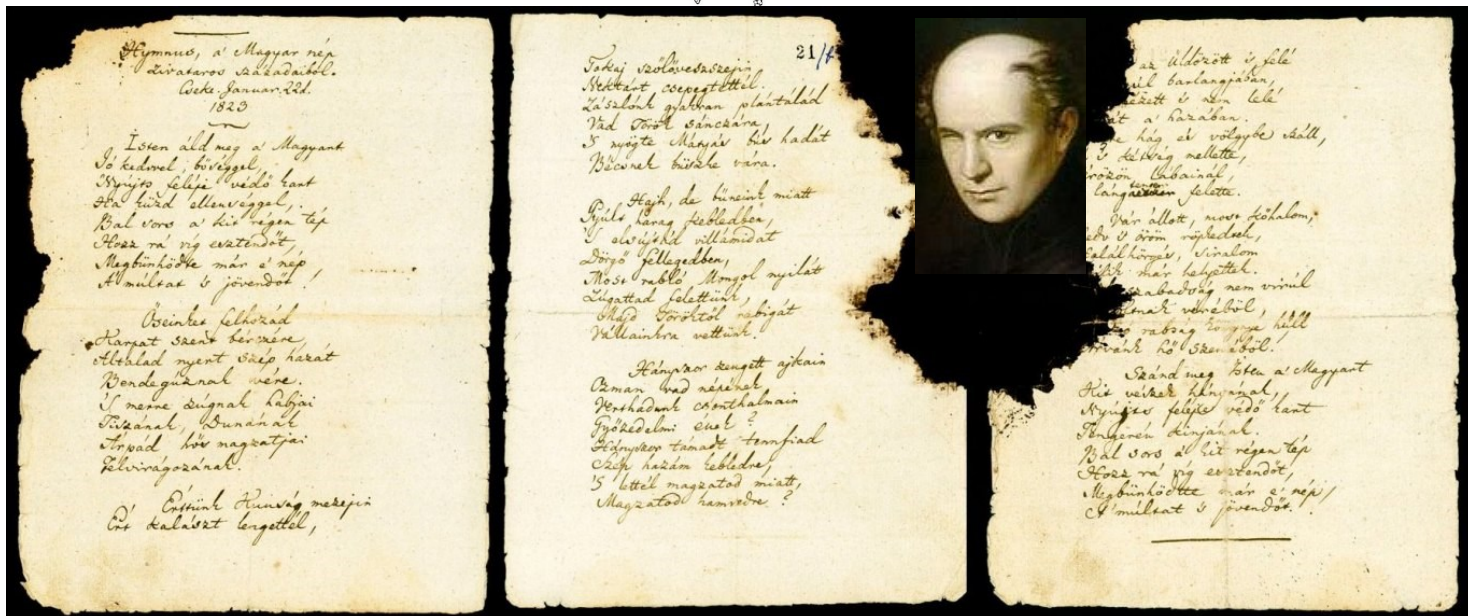 Hymnus, a' Magyar nép
zivataros századaiból.
Cseke. Januar. 22d.
1823
Isten áld meg a' Magyart
Jó kedvvel, bőséggel,
Nyújts feléje védő kart
Ha küzd ellenséggel,
Bal sors a' kit régen tép
Hozz rá víg esztendőt,
Megbűnhödte már e' nép
A' múltat 's jövendőt!
Őseinket felhozád
Kárpát szent bérczére,
Általad nyert szép hazát
Bendegúznak vére.
'S merre zúgnak habjai
Tiszának, Dunának
Árpád hős magzatjai
Felvirágozának.
Értünk Kunság mezejin
Ért kalászt lengettél,
21/b
Tokaj szőlővesszejin
Nektárt csepegtettél.
Zászlónk gyakran plántálád
Vad Török sánczára,
'S nyögte Mátyás bús hadát
Bécsnek büszke vára.
Hajh, de bűneink miatt
Gyúlt harag kebledben,
'S elsújtád villámidat
Dörgő fellegedben,
Most rabló Mongol nyilát
Zúgattad felettünk,
Majd Töröktől rabigát
Vállainkra vettünk.
Hányszor zengett ajkain
Ozman vad népének
Vert hadunk csonthalmain
Győzedelmi ének?
Hányszor támadt tennfiad
Szép hazám kebledre,
'S lettél magzatod miatt,
Magzatod hamvedre?
az üldözött 's felé
barlangjában,
nézett 's nem lelé
a' hazában.
hág és völgybe száll,
'S kétség mellette,
lábainál,
felette.
Vár állott, most kőhalom,
's öröm röpkedtek,
Halálhörgés, siralom
már helyettek.
szabadság nem virúl
véréből,
rabság könnye húll
hő szeméből.
Szánd meg Isten a' Magyart
Kit vészek hányának,
Nyújts feléje védő kart
Tengerén kínjának.
Bal sors a' kit régen tép
Hozz rá víg esztendőt,
Megbűnhödte már e' nép,
A' múltat 's jövendőt.